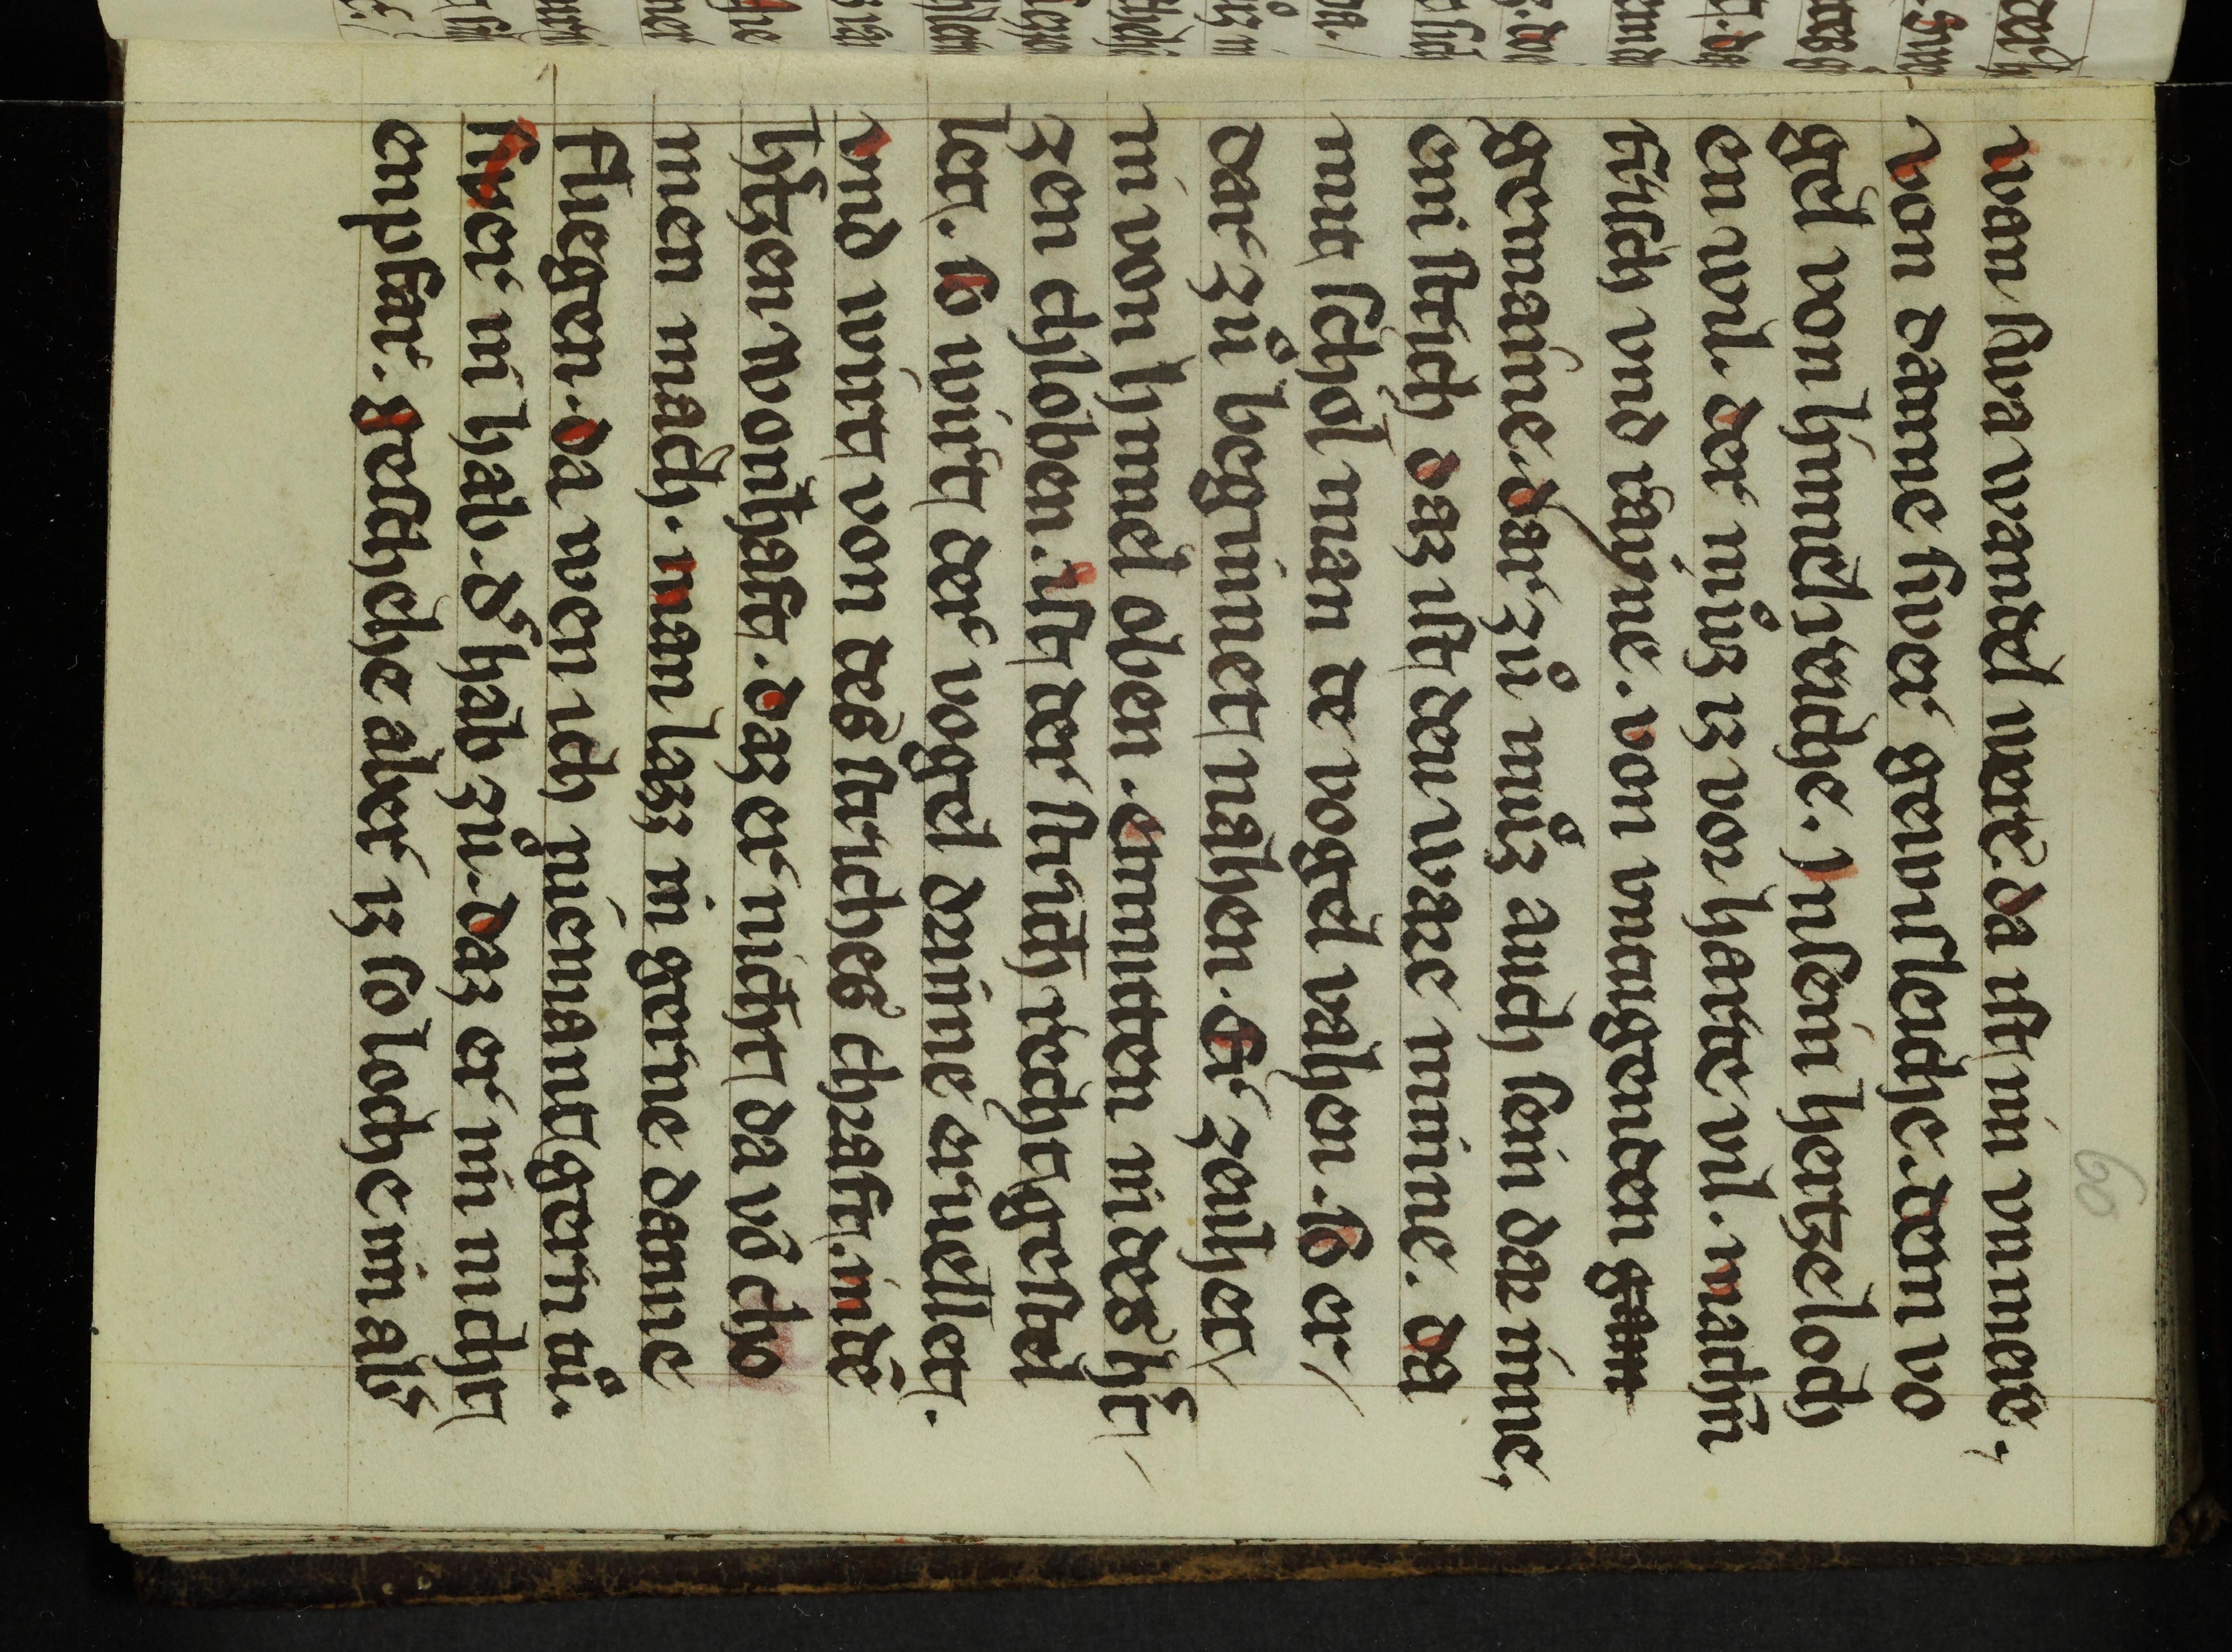 60
wan swa wandel were. da ist in vnmere.
von danne swer gewisleiche. den vo
gel von himelreiche. In sein hertze loch
en wil. der můz iz vor haite vil. machn
kůsch vnd rayne. von vntugenten
gemaine. dar zů můz auch sein dar inne,
ein strich daz ist deu ware minne. da
mit schol man de vogel vahen. So er/
dar zů beginnet nahen. Er zeuhet
in von hymel oben. enmitten in des hℯ̄t
zen chloben. ist der strich recht gestel
let. so wirt der vogel drinne eruellet.
vnd wirt von des striches chraft. in dē
hℯ̄tzen wonhaft. daz er nicht da vō cho
men mach. wan lazz in gerne danne
fliegen. da wen ich niemant gern tů.
swer in hab. dˢ hab zů. daz er in nicht
enphar. Petliche aber iz so loche inals